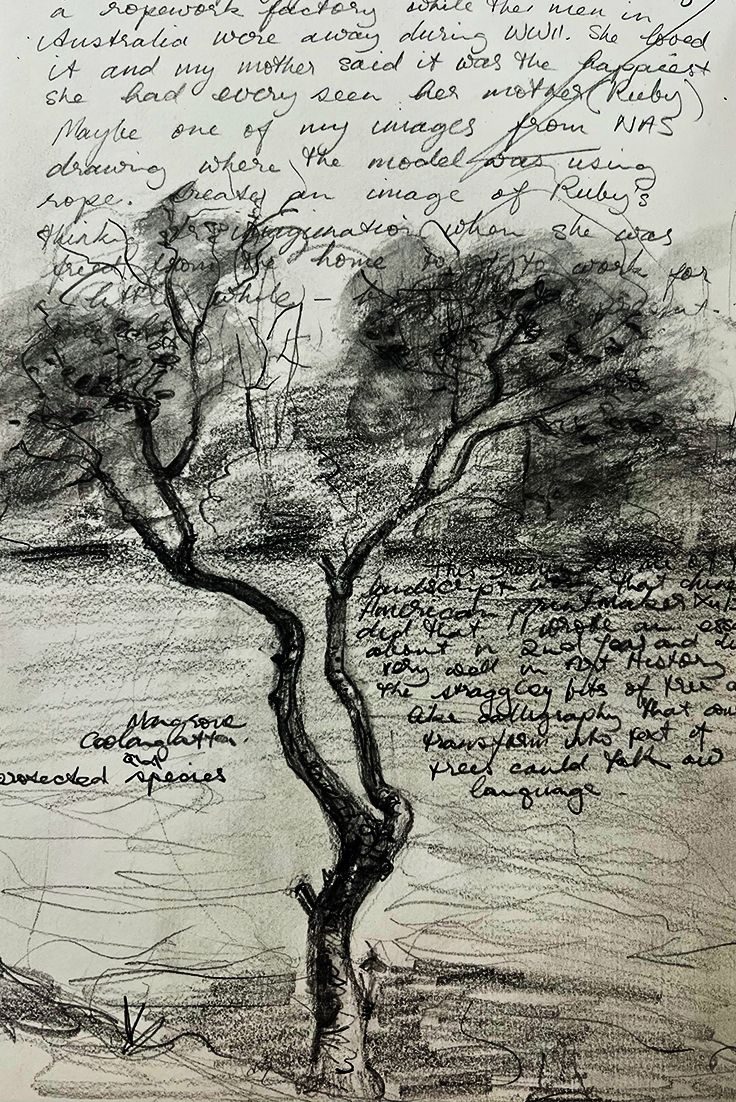 a ropework factory while the men in
Australia were away during WWII. She loved
it and my mother said it was the happiest
she had every seen her mother (Ruby)
Maybe one of my images from NAS
drawing where the model was using
rope. Create an image of Ruby's
thinking imagination when she was
freed from the home to go to work for
a little while -
This reminded me of
landscript
American printmaker Xu
did that I wrote an ess
about in 2nd year and di
very well in Art History
the straggley bits of tree a
like calligraphy that cou
transform into text if
trees could talk our
language.
Mangrove
Coolangatta.
protected species